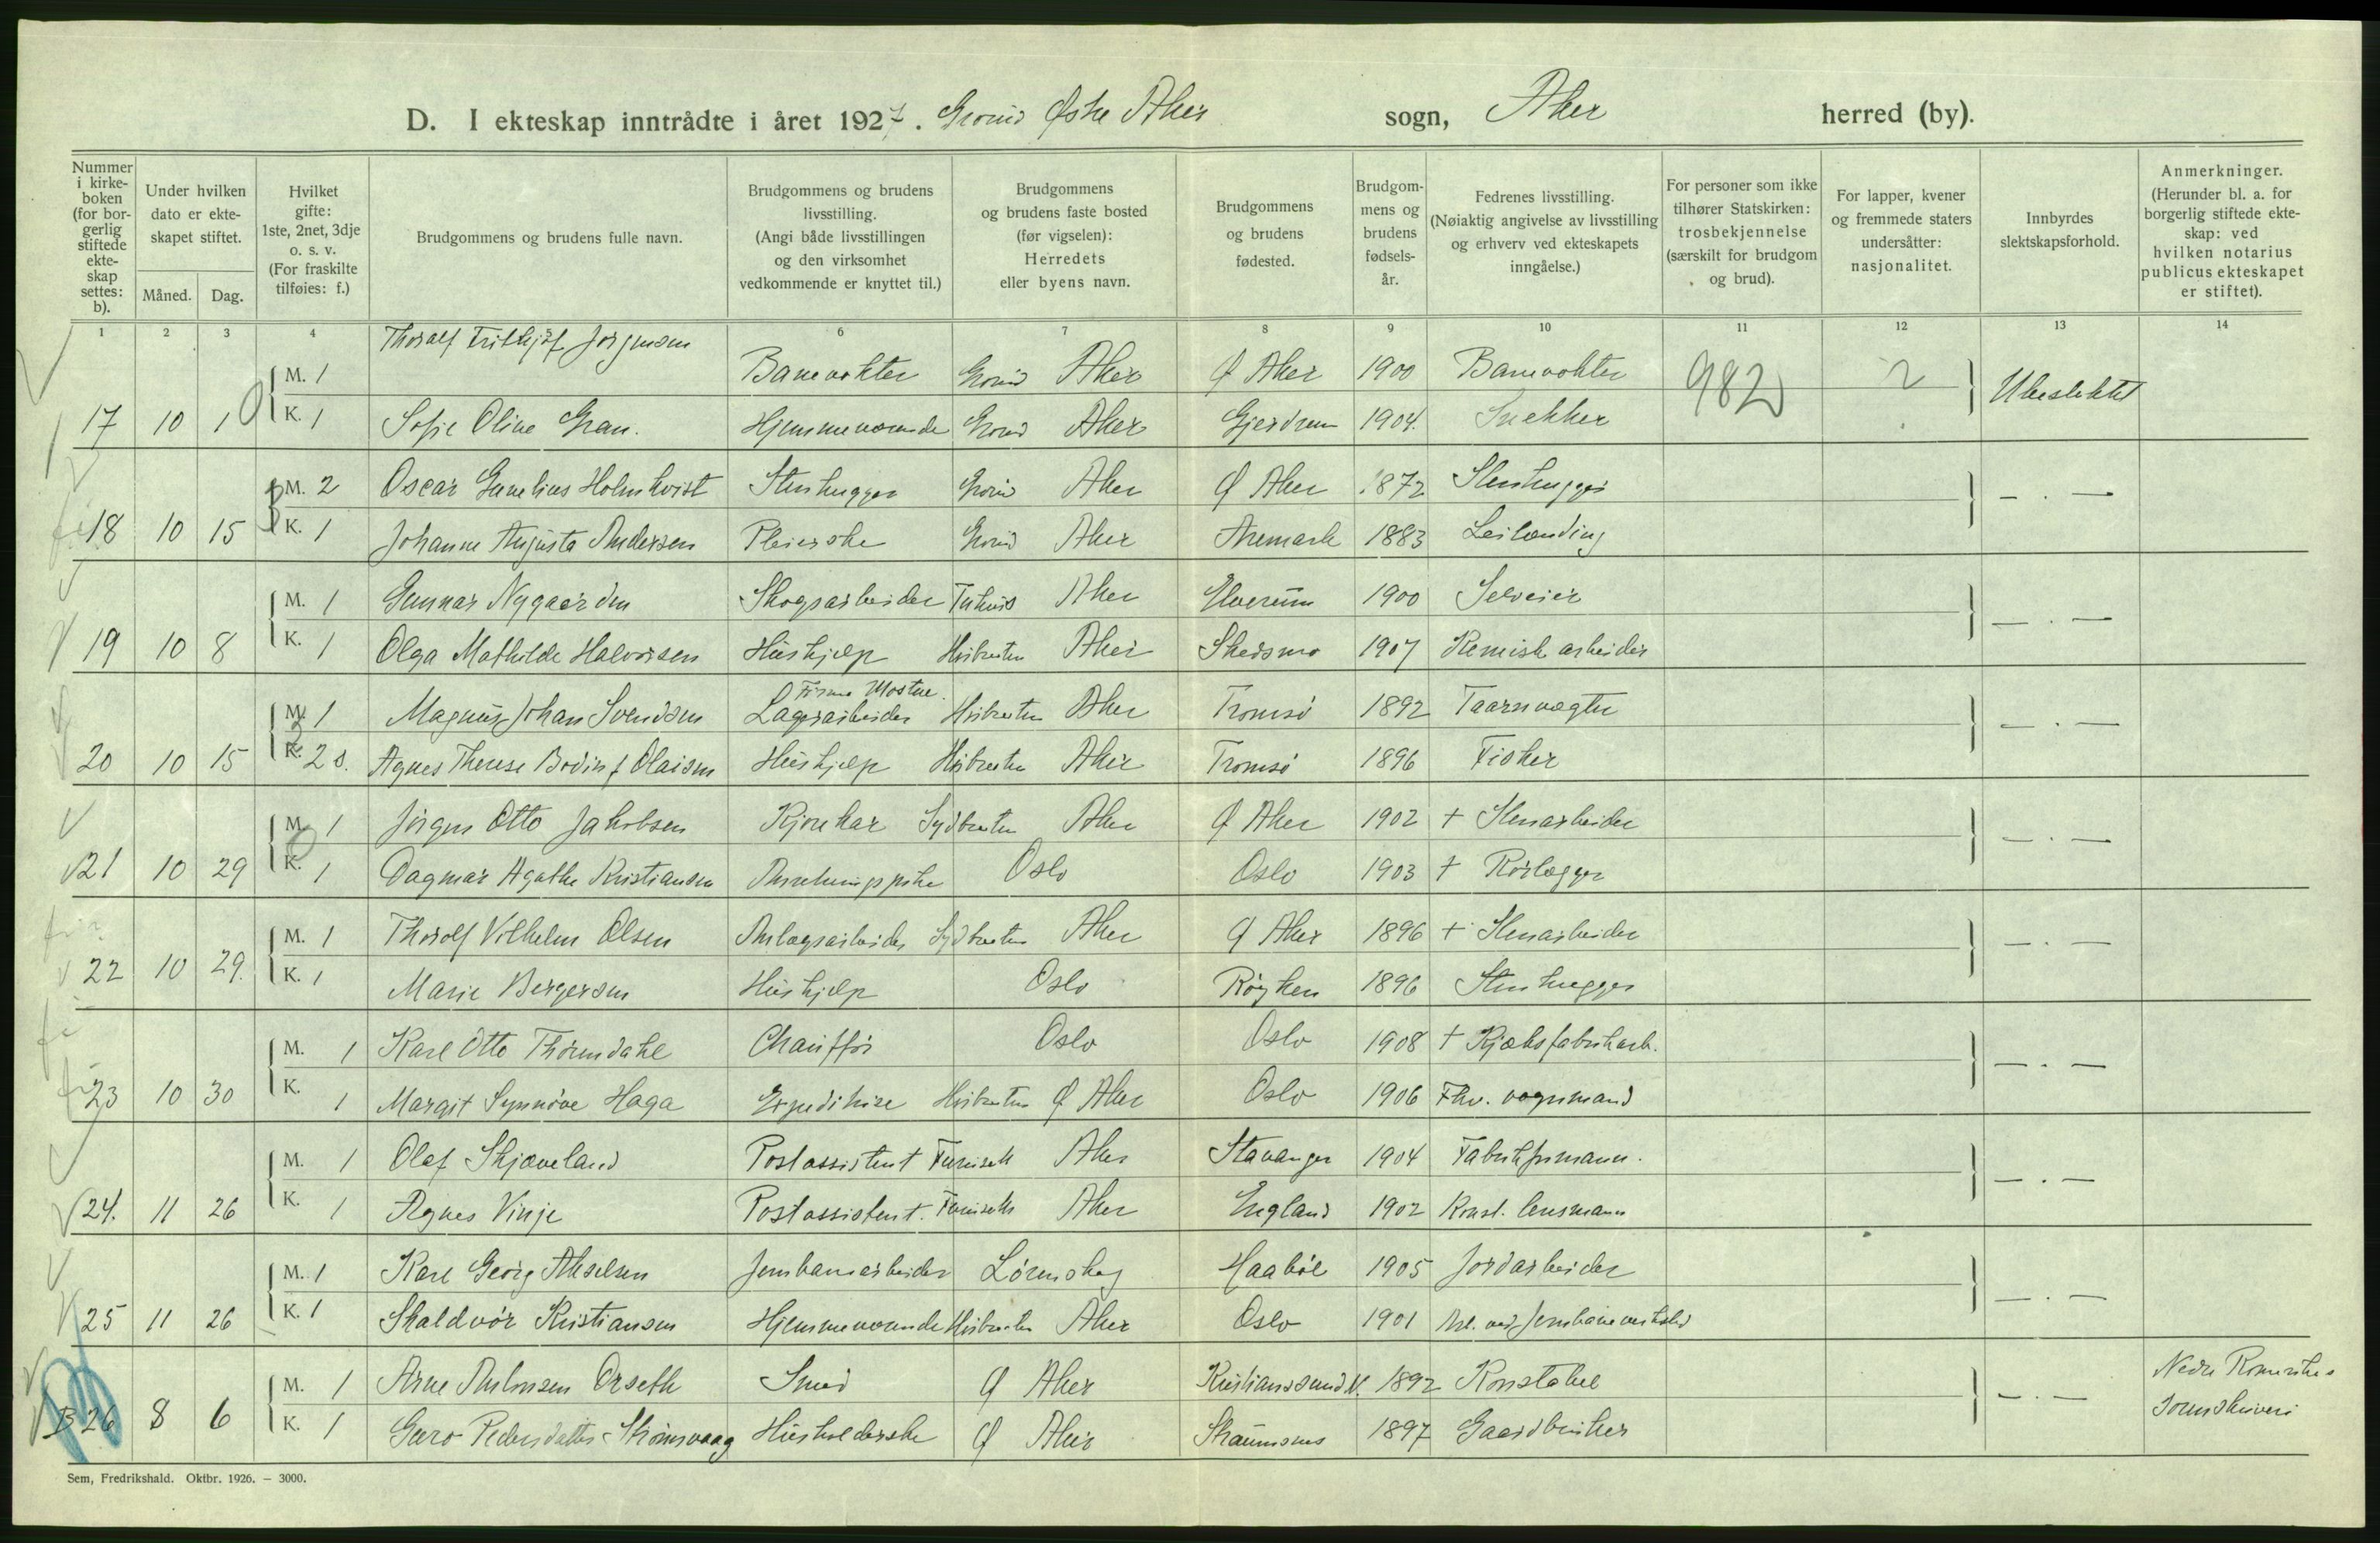 D. I ekteskap inntrådte i året 1927. Grorud Østre Aker sogn, Aker herred (by).
Nummer i kirkeboken (for borgerlig stiftede ekteskap settes: b).
Under hvilken dato er ekteskapet stiftet.
Måned. Dag.
Hvilket gifte: 1ste, 2net, 3dje o. s. v. (For fraskilte tilføies: f.)
Brudgommens og brudens fulle navn.
Brudgommens og brudens livsstilling. (Angi både livsstillingen og den virksomhet vedkommende er knyttet til.)
Brudgommens og brudens faste bosted (før vigselen): Herredets eller byens navn.
Brudgommens og brudens fødested.
Brudgommens og brudens fødselsår.
Fedrenes livsstilling. (Nøiaktig angivelse av livsstilling og erhverv ved ekteskapets inngåelse.)
For personer som ikke tilhører Statskirken: trosbekjennelse (særskilt for brudgom og brud).
For lapper, kvener og fremmede staters undersåtter: nasjonalitet.
Innbyrdes slektskapsforhold.
Anmerkninger. (Herunder bl. a. for borgerlig stiftede ekteskap: ved hvilken notarius publicus ekteskapet er stiftet).
1 2 3 4 6 7 8 9 10 11 12 13 14
Thoralf Frithjof Jørgensen
M. 1 Banevokter Grorud Aker Ø Aker 1900 Banevokter 982 2 Ubeslektet
17 10 1 K. 1 Sofie Oline Gran. Hjemmeværende Grorud Aker Gjerdrum 1904. Snekker
M. 2 Oscar Gunelius Holmkvist Stenhugger Grorud Aker Ø Aker 1872 Stenhugger — . —
18 10 15 K. 1 Johanne Augusta Andersen Pleierske Grorud Aker Aremark 1883 Leilending
M. 1 Gunnar Nygaarden Skogsarbeider Aker Elverum 1900 Selveier — . —
19 10 8 K. 1 Olga Mathilde Halvorsen Hushjelp Høibraten Aker Skedsmo 1907 Kemisk arbeider
Firma Mostue.
M. 1 Magnus Johan Svendsen Lagerarbeider Høibraten Aker Tromsø 1892 Taarnvogter — . —
20 10 15 K. 2 Agnes Therese Bodin f Olaisen Hushjelp Høibraten Aker Tromsø 1896 Fisker
M. 1 Jørgen Otto Jakobsen Kjørekar Sydbraten Aker Ø Aker 1902 + Stenarbeider — . —
21 10 29 K. 1 Dagmar Agathe Kristiansen Anretningspike Oslo Oslo 1903 + Rørlægger
M. 1 Thorolf Vilhelm Olsen Anlægsarbeider Sydbraten Aker Ø Aker 1896 + Stenarbeider — . —
22 10 29. K. 1 Marie Bergersen Hushjelp Oslo Røyken 1896 Stenhugger
M. 1 Karl Otto Thorendahl Chauffør Oslo Oslo 1908 + Kjæksfabrikarb. — . —
23 10 30 K. 1 Margit Synnøve Haga Expeditrise Høibraten Ø Aker Oslo 1906 Fhv. vognmand
M. 1 Olaf Skjæveland Postassistent Furuseth Aker Stavanger 1904 Fabrikformann. — . —
24. 11 26 K. 1 Agnes Vinje Postassistent. Furuseth Aker England 1902 Konst. lensmann
M. 1 Karl Georg Akselsen Jernbanearbeider Lørenskog Haabøl 1905 Jordarbeider — . —
25 11 26 K. 1 Skaldvør Kristiansen Hjemmeværende Høibraten Aker Oslo 1901 Arb. ved Jernbaneverksted
M. 1 Arne Antonsen Orseth Smed Ø Aker Kristianssund N. 1892 Konstabel — . — Nedre Romerikes
B 26 8 6 K. 1 Guro Pedersdatter Strømsvaag Husholderske Ø Aker 1897 Gaardbruker Sorenskriveri
Sem, Fredrikshald. Oktbr. 1926. — 3000.